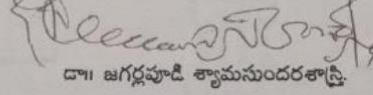 డా॥ జగర్లపూడి శ్యామసుందరశాస్త్రి.